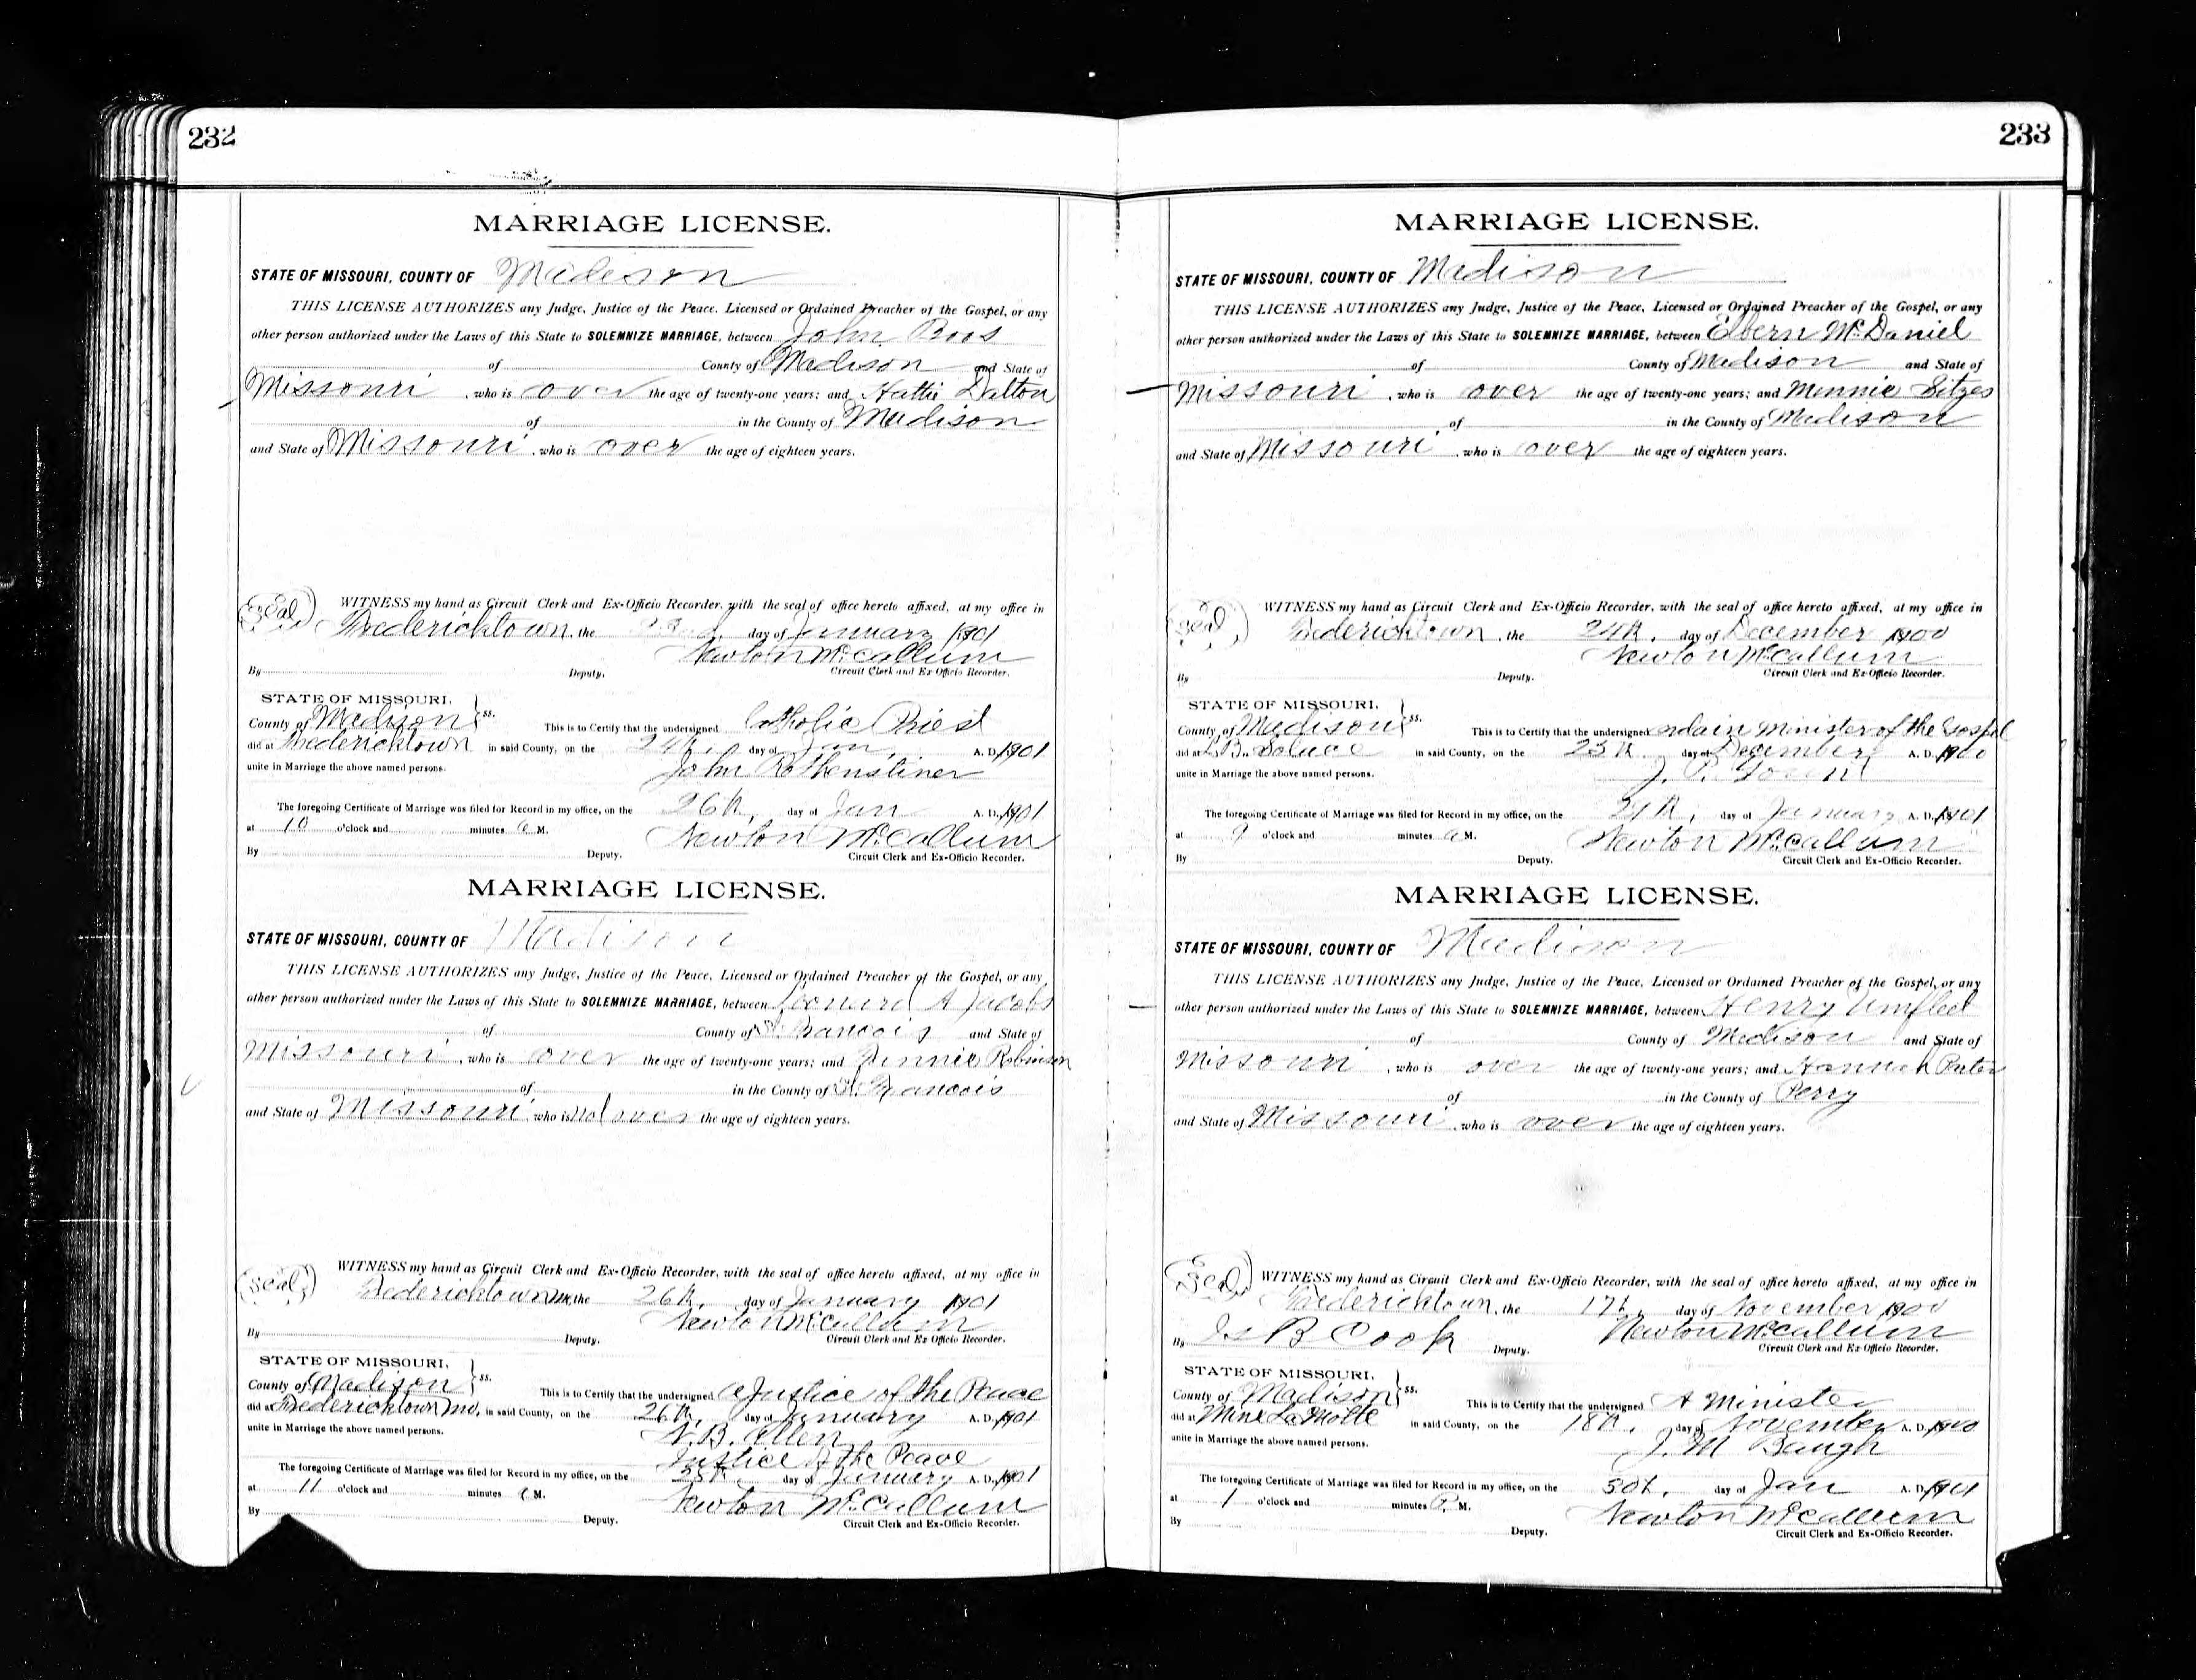 232
MARRIAGE LICENSE.
STATE OF MISSOURI, COUNTY OF Madison
THIS LICENSE AUTHORIZES any Judge, Justice of the Peace, Licensed or Ordained Preacher of the Gospel, or any
other person authorized under the Laws of this State to SOLEMNIZE MARRIAGE, between John
of County of Madison and State of
Missouri, who is over the age of twenty-one years; and Hattie Dalton
of in the County of Madison
and State of Missouri, who is over the age of eighteen years.
Seal WITNESS my hand as Circuit Clerk and Ex-Officio Recorder, with the seal of office hereto affixed, at my office in
Fredericktown, the day of January 1901
Newton McCallum
By Deputy. Circuit Clerk and Ex Officio Recorder.
STATE OF MISSOURI,
County of Madison ss. This is to Certify that the undersigned Catholic Priest
did at Fredericktown in said County, on the 24th, day of Jan, A. D., 1901
unite in Marriage the above named persons. John Rothensteiner
The foregoing Certificate of Marriage was filed for Record in my office, on the 26th, day of Jan A. D., 1901
at 10 o'clock and minutes a M. Newton McCallum
By Deputy. Circuit Clerk and Ex-Officio Recorder.
MARRIAGE LICENSE.
STATE OF MISSOURI, COUNTY OF Madison
THIS LICENSE AUTHORIZES any Judge, Justice of the Peace, Licensed or Ordained Preacher of the Gospel, or any
other person authorized under the Laws of this State to SOLEMNIZE MARRIAGE, between Leonard A Jacobs
of County of St. Francois and State of
Missouri, who is over the age of twenty-one years; and Robinson
of in the County of St. Francois
and State of Missouri who is not over the age of eighteen years.
Seal WITNESS my hand as Circuit Clerk and Ex-Officio Recorder, with the seal of office hereto affixed, at my office in
Fredericktown the 26th, day of January 1901
Newton McCallum
By Deputy. Circuit Clerk and Ex Officio Recorder.
STATE OF MISSOURI,
County of Madison ss. This is to Certify that the undersigned a Justice of the Peace
did at Fredericktown Mo, in said County, on the 26th, day of January A. D., 1901
unite in Marriage the above named persons. N. B. Allen
Justice of the Peace
The foregoing Certificate of Marriage was filed for Record in my office, on the day of January A. D., 1901
at 11 o'clock and minutes a M. Newton McCallum
By Deputy. Circuit Clerk and Ex-Officio Recorder.
233
MARRIAGE LICENSE.
STATE OF MISSOURI, COUNTY OF Madison
THIS LICENSE AUTHORIZES any Judge, Justice of the Peace, Licensed or Ordained Preacher of the Gospel, or any
other person authorized under the Laws of this State to SOLEMNIZE MARRIAGE, between Elbern McDaniel
of County of Madison and State of
Missouri, who is over the age of twenty-one years; and Minnie Sitzes
of in the County of Madison
and State of Missouri, who is over the age of eighteen years.
Seal WITNESS my hand as Circuit Clerk and Ex-Officio Recorder, with the seal of office hereto affixed, at my office in
Fredericktown, the 24th, day of December 1900
Newton McCallum
By Deputy. Circuit Clerk and Ex Officio Recorder.
STATE OF MISSOURI,
County of Madison ss. This is to Certify that the undersigned ordain Minister of the Gospel
did at in said County, on the 25th day of December A. D., 1900
unite in Marriage the above named persons.
The foregoing Certificate of Marriage was filed for Record in my office, on the day of January A. D., 1901
at 9 o'clock and minutes a M. Newton McCallum
By Deputy. Circuit Clerk and Ex-Officio Recorder.
MARRIAGE LICENSE.
STATE OF MISSOURI, COUNTY OF Madison
THIS LICENSE AUTHORIZES any Judge, Justice of the Peace, Licensed or Ordained Preacher of the Gospel, or any
other person authorized under the Laws of this State to SOLEMNIZE MARRIAGE, between Henry Umfleet
of County of Madison and State of
Missouri, who is over the age of twenty-one years; and Hannah
of in the County of Perry
and State of Missouri, who is over the age of eighteen years.
Seal WITNESS my hand as Circuit Clerk and Ex-Officio Recorder, with the seal of office hereto affixed, at my office in
Fredericktown, the 17th, day of November 1900
By B Cook Deputy. Newton McCallum
Circuit Clerk and Ex Officio Recorder.
STATE OF MISSOURI,
County of Madison ss. This is to Certify that the undersigned A Minister
did at Mine La Motte in said County, on the 18th, day of November A. D., 1900
unite in Marriage the above named persons. J. M Baugh
The foregoing Certificate of Marriage was filed for Record in my office, on the 30th, day of Jan A. D., 1901
at 1 o'clock and minutes P. M. Newton McCallum
By Deputy. Circuit Clerk and Ex-Officio Recorder.